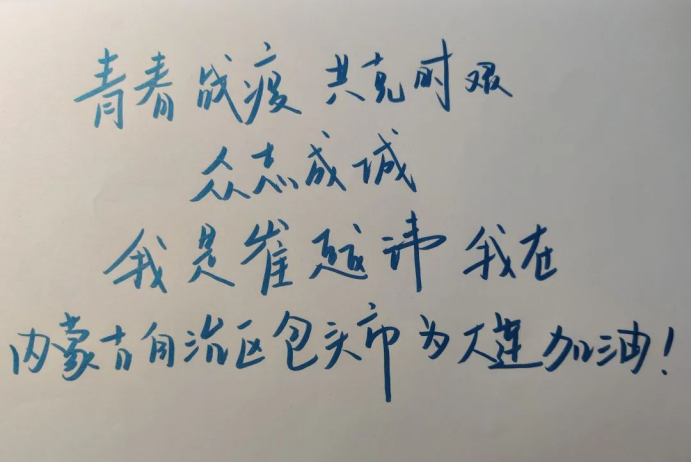 青春战疫 共克时艰
众志成城
我是崔 我在
内蒙古自治区包头市为大连加油!